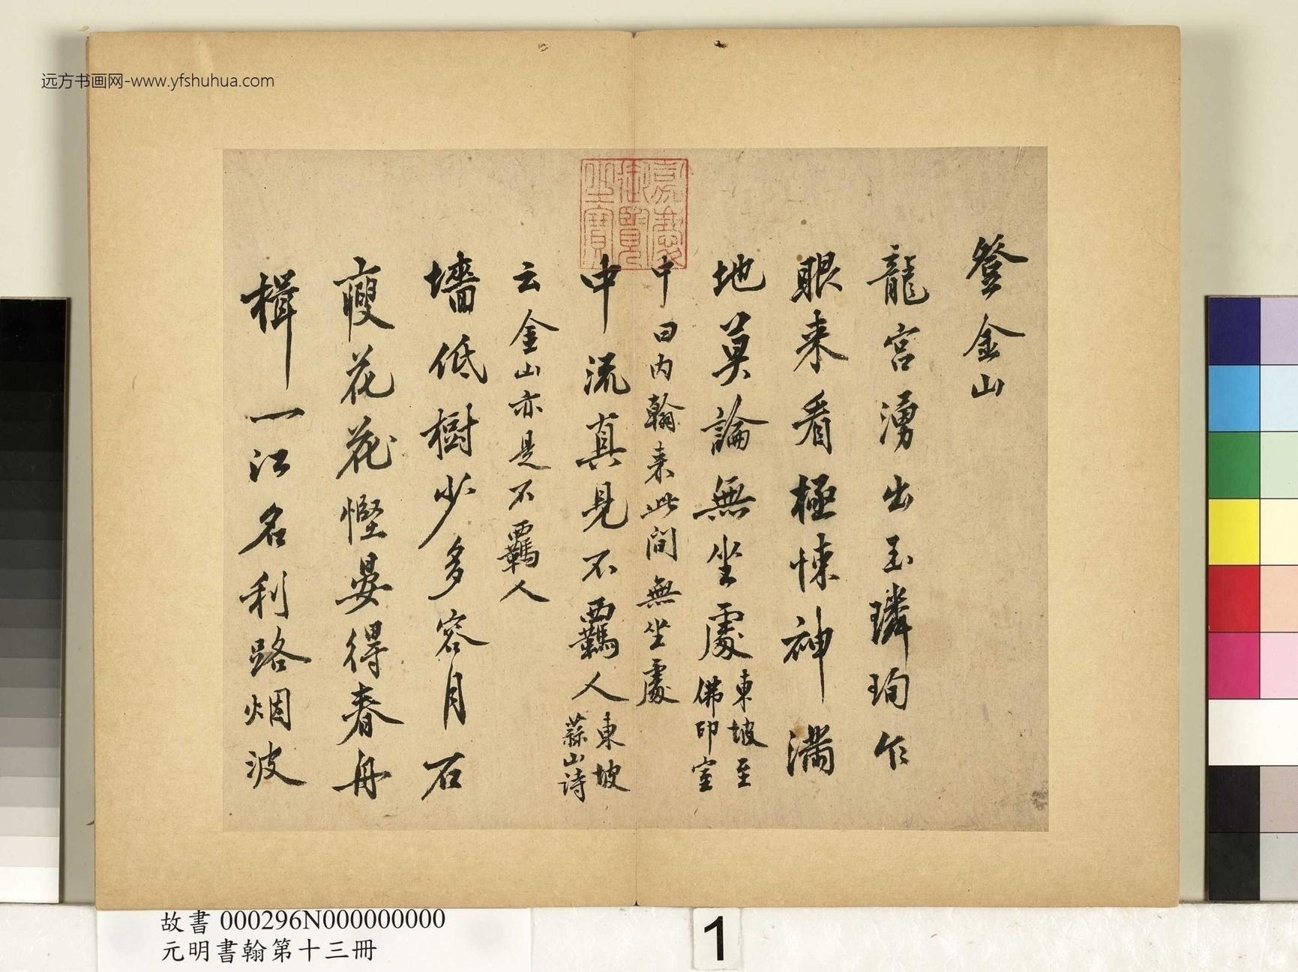 远方书画网-www.yfshuhua.com
嘉慶
御覽
之寶
登金山
龍宮湧出玉璘珣乍
眼来看極悚神滿
地莫論無坐處東坡至
佛印室
中曰内翰来此間無坐處
中流真見不羈人東坡
蒜山诗
云金山亦是不羈人
墻低樹少多容月石
瘦花花慳晏得春舟
楫一江名利路烟波
故書 000296N000000000
元明書翰第十三冊
1